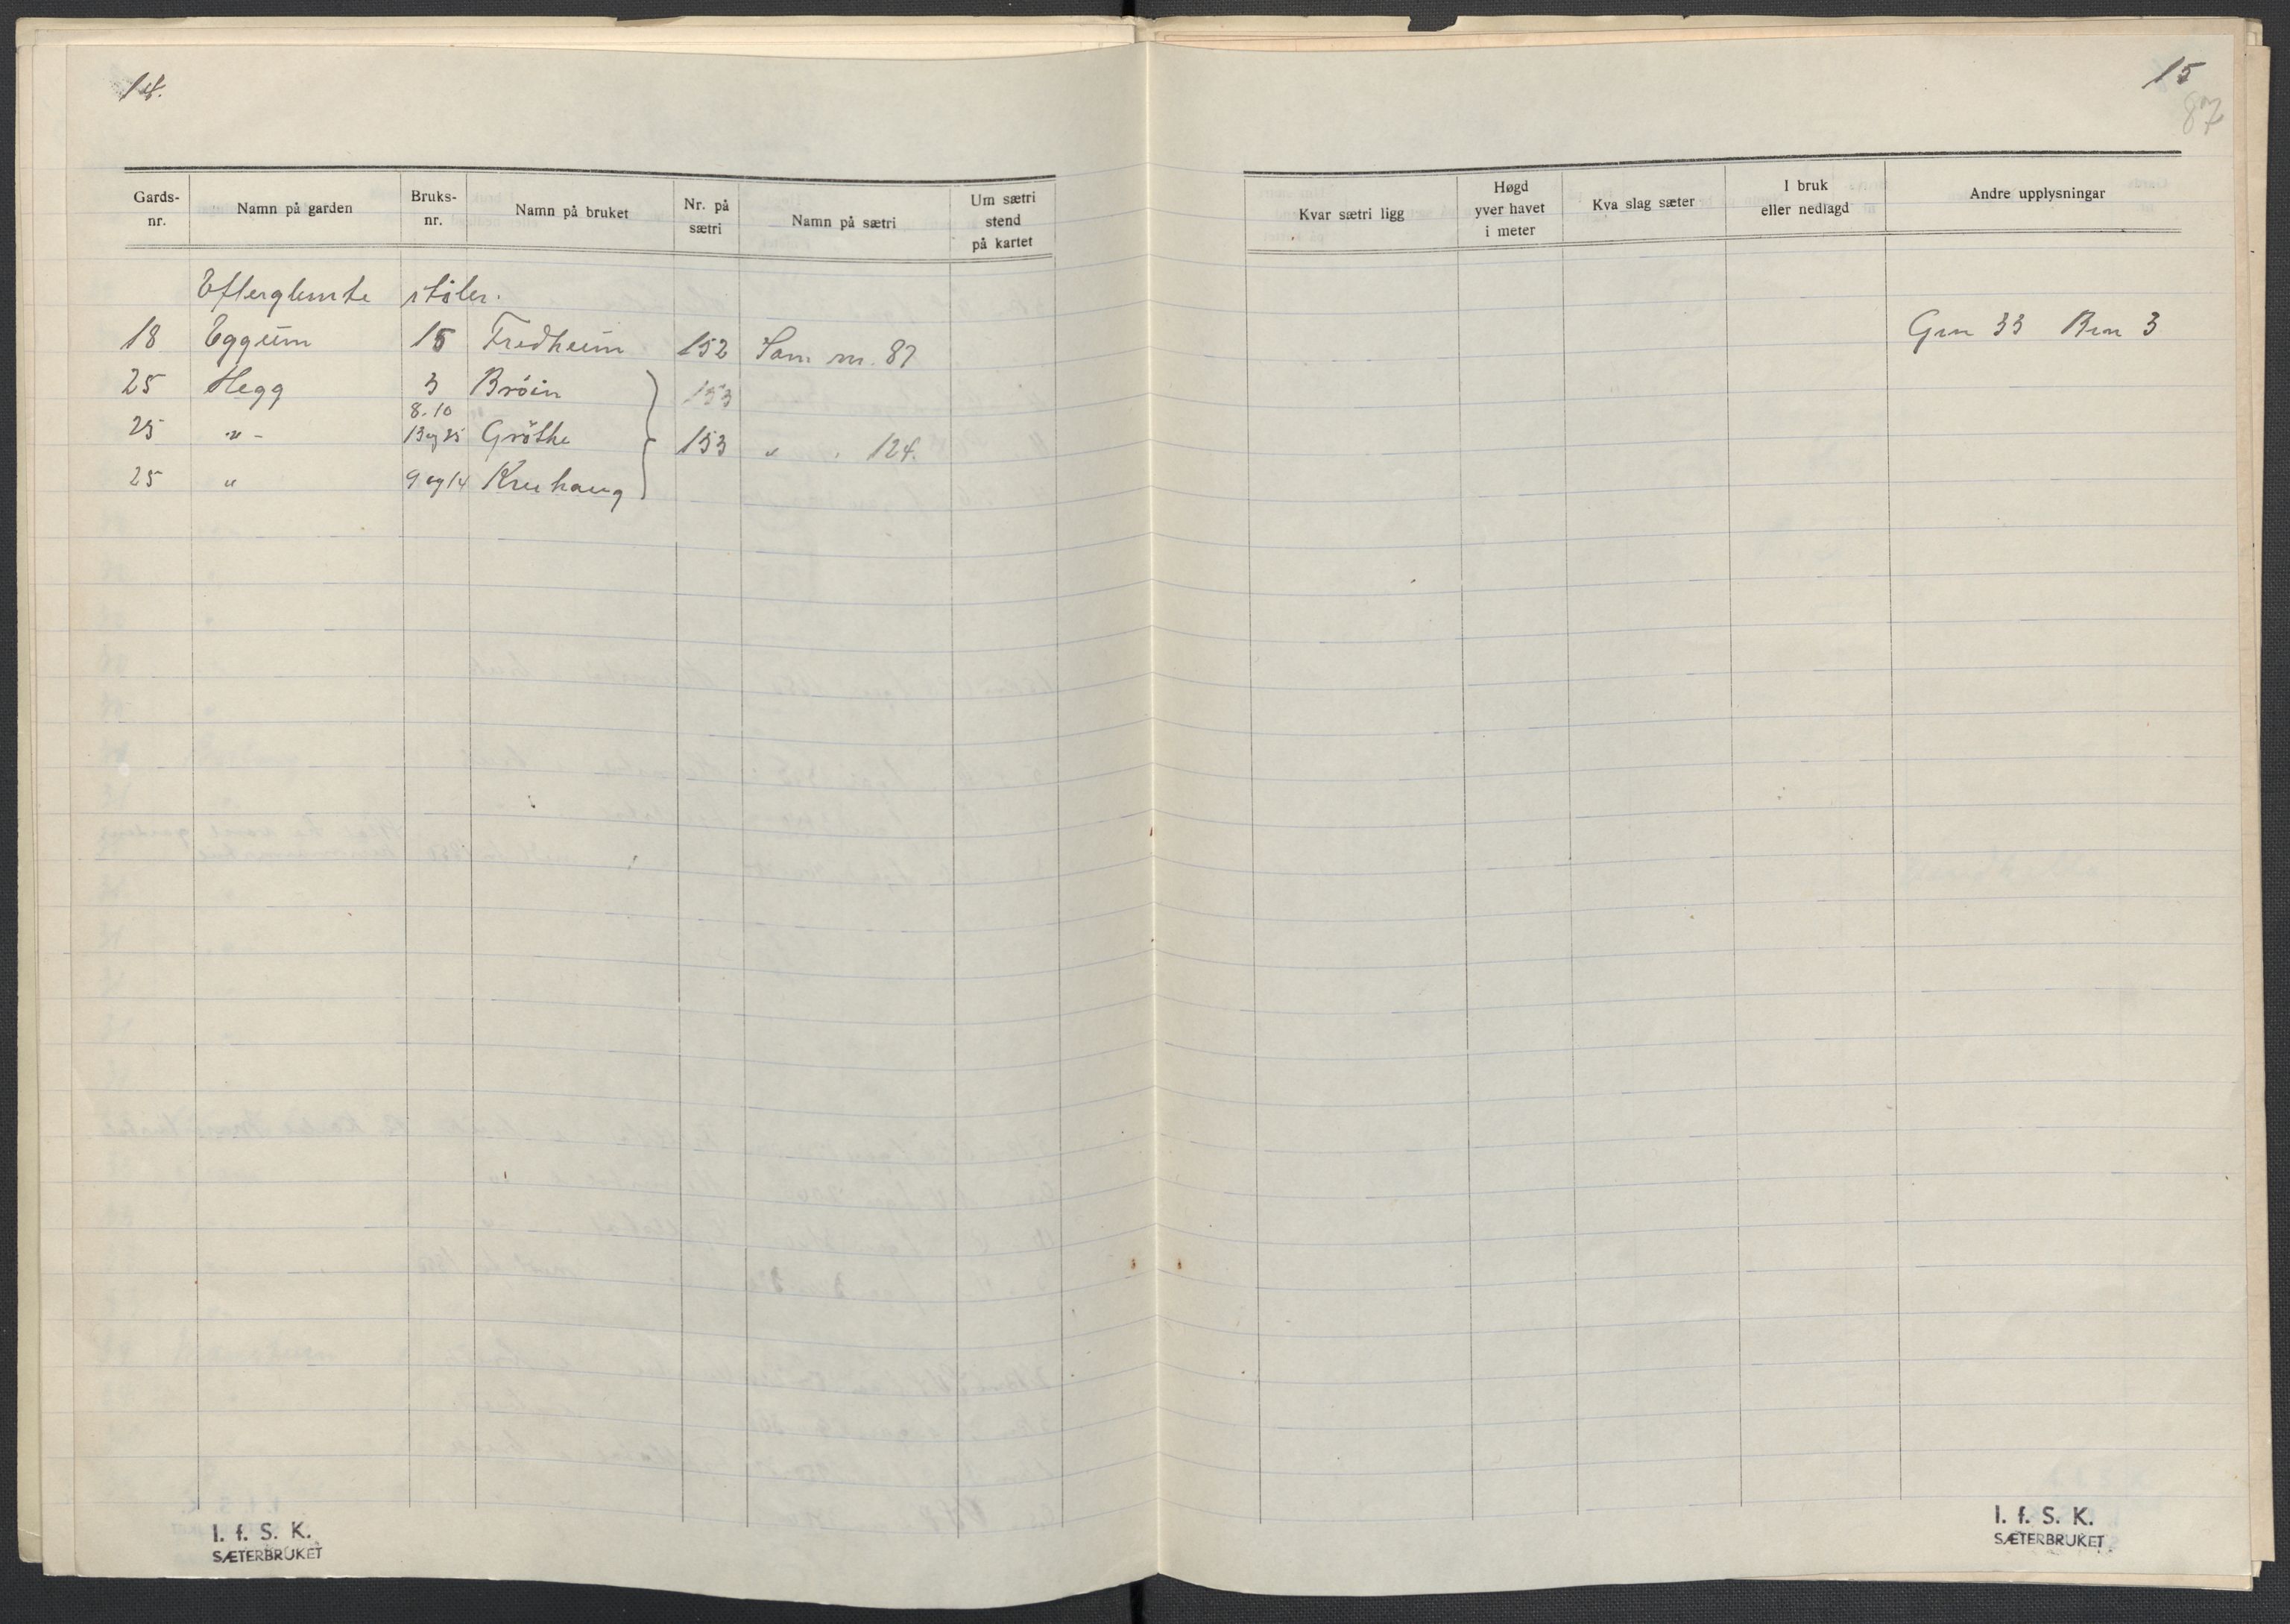 14.
Gards-nr. Namn på garden Bruks-nr. Namn på bruket Nr. på sætri Namn på sætri Um sætri stend på kartet
Efterglemte støler.
18 Eggum 15 Fredheim 152 Sam nr. 87
25 Hegg 3 Bröin 153
8.10
25 " - 13 og 25 Gröthe 153 " . 124.
25 " 9 og 14 Kruhaug
I. f. S. K.
SÆTERBRUKET
15
87
Kvar sætri ligg Høgd yver havet i meter Kva slag sæter I bruk eller nedlagd Andre upplysningar
Grn 33 Brn 3
I. f. S. K.
SÆTERBRUKET